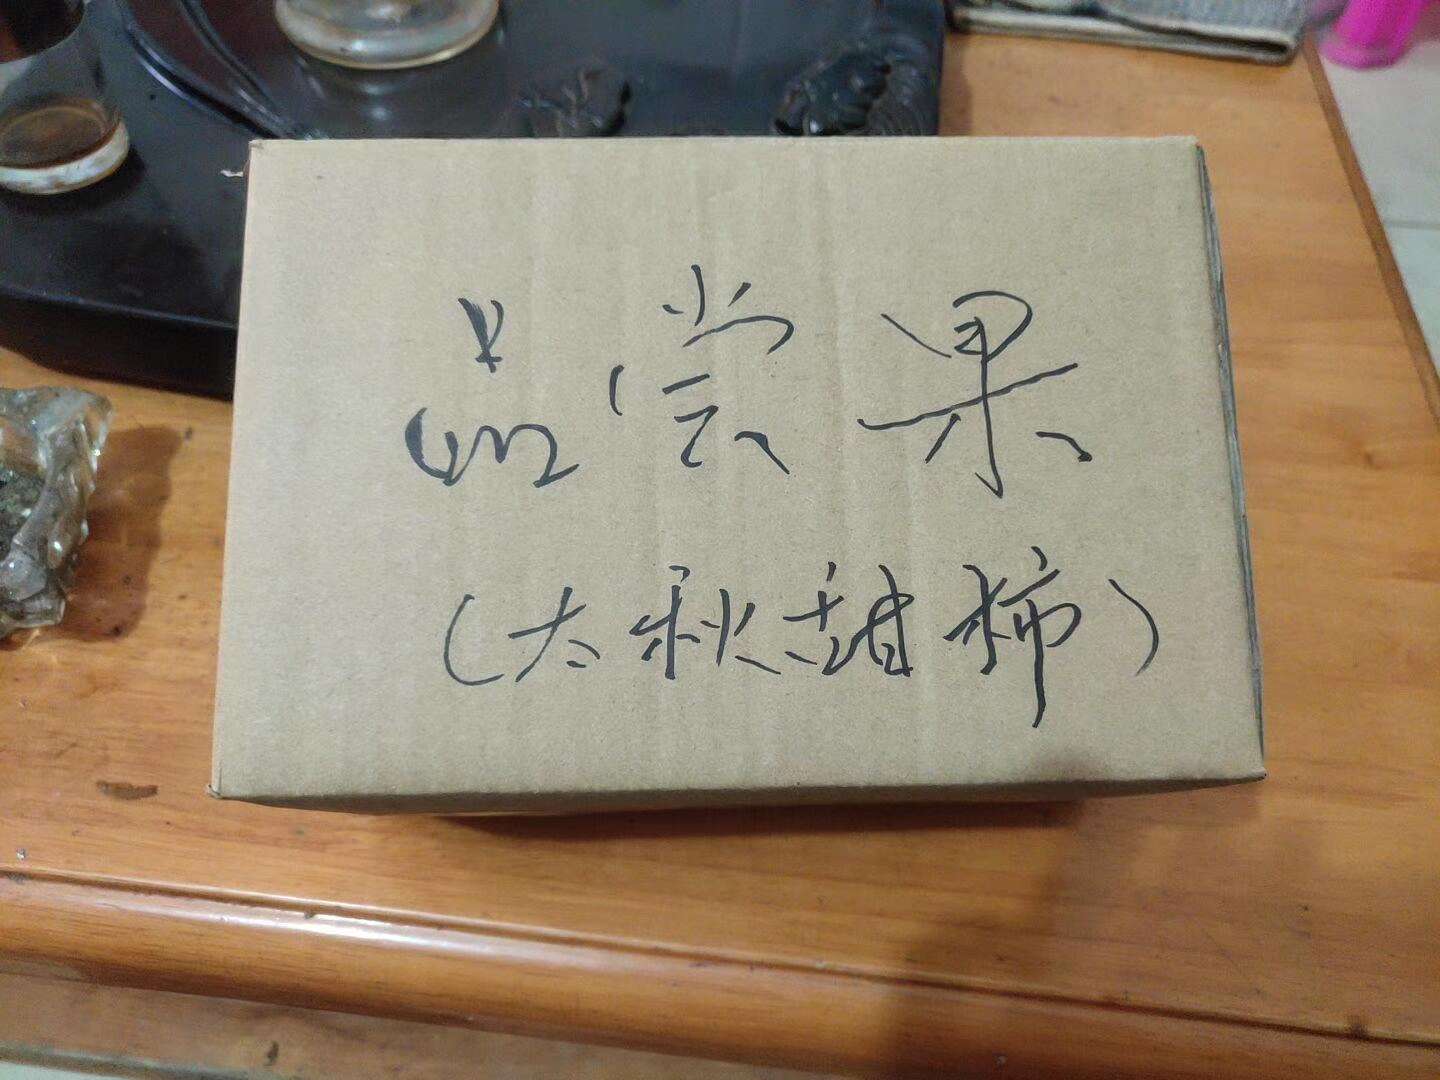 品尝果
(太秋甜柿)